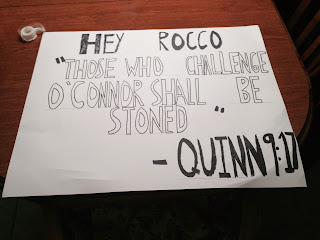 HEY ROCCO
"THOSE WHO CHALLENGE
O'CONNOR SHALL BE
STONED "
- QUINN 9:17